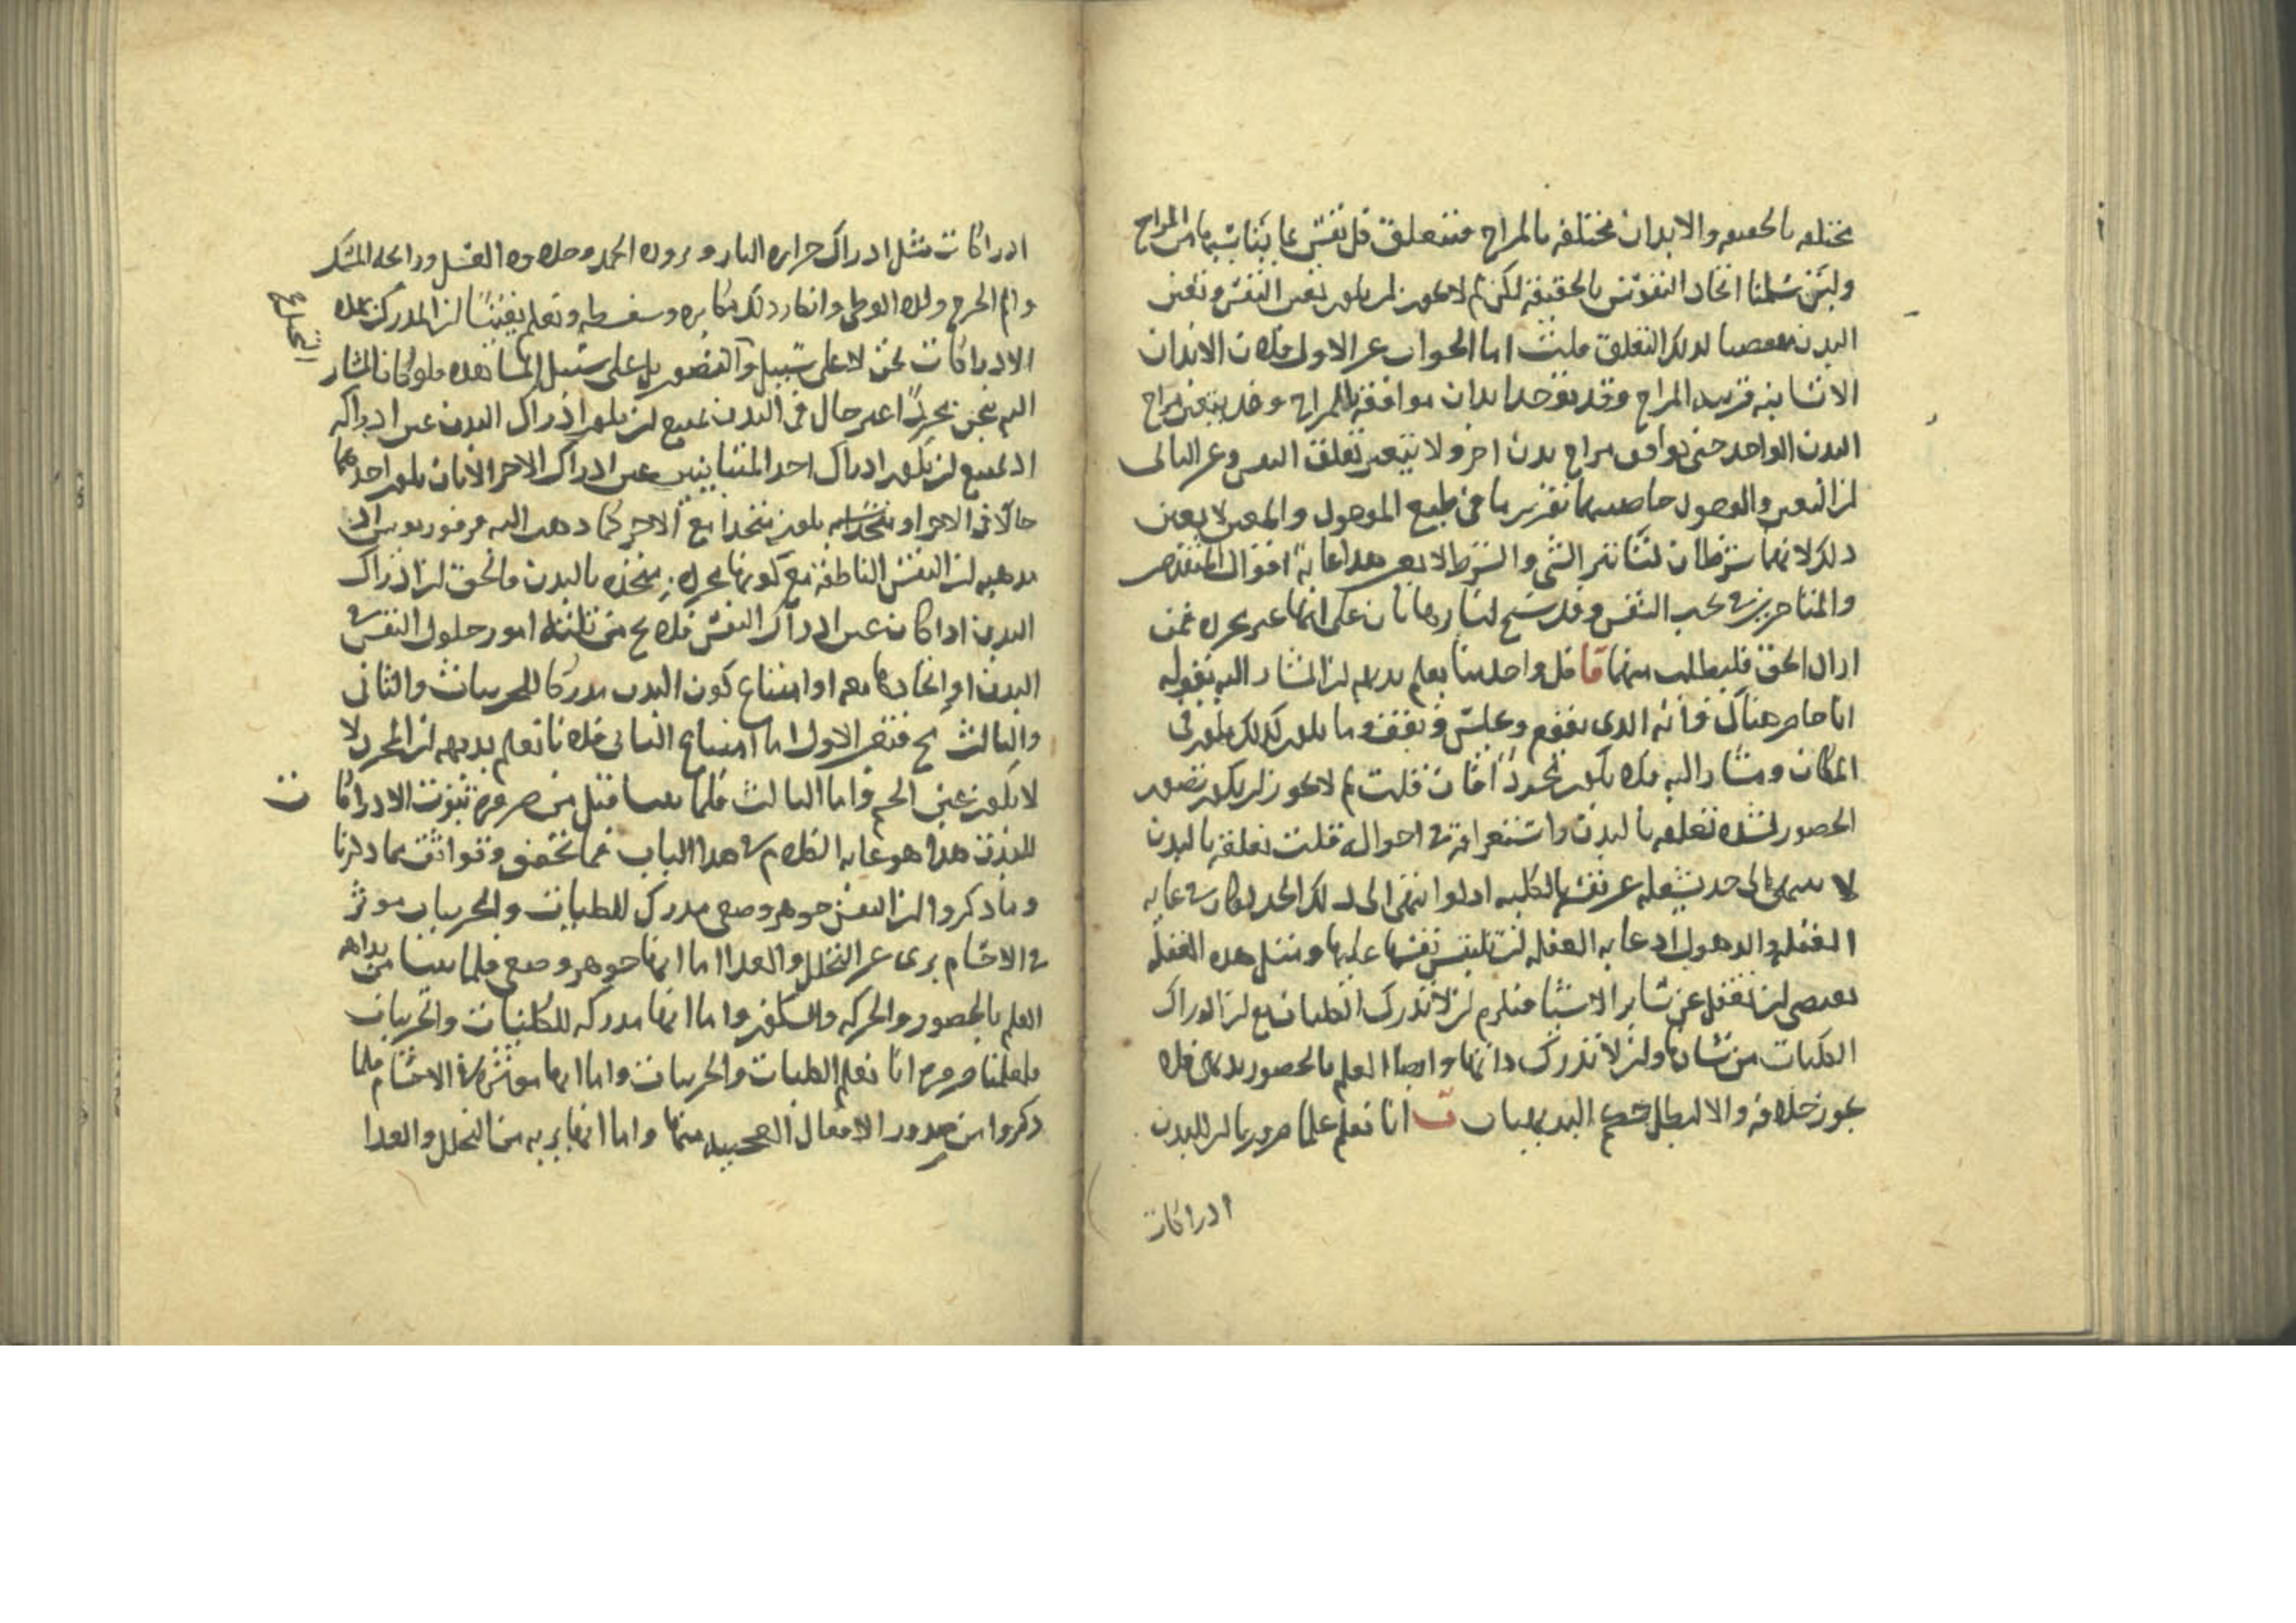 مختلفه بالحقيقه والابدان مختلفه بالمزاج فتتعلق كل نفس بما يناسبها من المزاج
ولئن سلمنا اتحاد النفوس بالحقيقة لكن لم لا يجوز ان يكون تعين النفس وتعين
البدن مقتضيا لذلك التعلق قلت اما الجواب عن الاول فلان الابدان
الانسانية قريبه المزاج وقد يوجد ابدان موافقة المزاج وقد يتغير مزاج
البدن الواحد حتى يوافق مزاج بدن اخر ولا يتغير تعلق النفس وعن الثانى
ان التعين والوصول خاصيتهما تقرير ما فى طبع الموصول والمعين لا يعين
ذلك لانهما شرطان لتاثير الشى والشرط لا هذا غاية اقوال المتقدمين
والمتاخرين فى النفس وقد سنح لنا برهانان على انها غير مجرده فمن
اراد الحق فليطلب منهما قا كل واحد منا يعلم بديهه ان المشار اليه بقوله
انا حاضر هناك وانه الذى يقوم ويجلس ويقف وما يكون كذلك يكون فى
المكان ومشار اليه فلا يكون مجردا فان قلت لم لا يجوز ان يكون تصور
الحضور لشدة تعلقه بالبدن واستغراقه فى احواله قلت تعلقه بالبدن
لا ينتهى الى حد يشغله عن نفسه بالكليه اذ لو انتهى الى ذلك الحد لكان فى غايه
الغفله والذهول اذ غايه الغفله ان تلتبس نفسها عليها ومثل هذه الغفله
يقتضى ان تغفل عن سائر الاشيا فيلزم ان لا تدرك الكليات مع ان ادراك
الكليات من شانها وان لا تدرك ذاتها وايضا العلم بالحضور بديهى فلا
يجوز خلافه والا لبطل حكم البديهيات ب انا نعلم علما ضروريا ان للبدن
ادراكات
ادراكات مثل ادراك حراره النار وبروده الجمد وحلاوه العسل ورائحه المسك
والم الجرح ولذه الوطى وانكار ذلك مكابره وسفسطه ونعلم يقينا ان المدرك بهذه
الادراكات نحن لا على سبيل التصور بل على سبيل المشاهده فلو كان المشار
اليه بنحن مجردا غير حال فى البدن يمتنع ان يكون ادراك البدن عين ادراكه
اذ يمتنع ان يكون ادراك احد المتباينين عين ادراك الاخر الا بان يكون احدهما
حالا فى الاخر او متحدا به بان يتحد مع الاخر كما ذهب اليه فرفوريوس اذ
مذهبه ان النفس الناطقة مع كونها مجرده متحده بالبدن فالحق ان ادراك
البدن اذا كان عين ادراك النفس فلا يخ من ثلثة امور حلول النفس فى
البدن او اتحادها معه او امتناع كون البدن مدركا للجزييات والثانى
والثالث مح فتعين الاول اما امتناع الثانى فلانا نعلم بديهه ان المجرد لا
لا يكون عين الجسم واما الثالث فلما بينا قبل من ضرورة ثبوت الادراكات
للبدن هذا هو غايه الكلام فى هذا الباب
وما ذكروا ان النفس جوهر وضعى مدرك للكليات والجزييات موثر
فى الاجسام برى عن التخلل والغذا اما انها جوهر وضعى فلما بينا من بداهه
العلم بالحضور والحركه والسكون واما انها مدركه للكليات والجزييات
فلعلمنا ضروره انا نعلم الكليات والجزييات واما انها موثره فى الاجسام فلما
ذكروا من صدور الافعال العجيبه منها واما انها بريه من التخلل والغذا